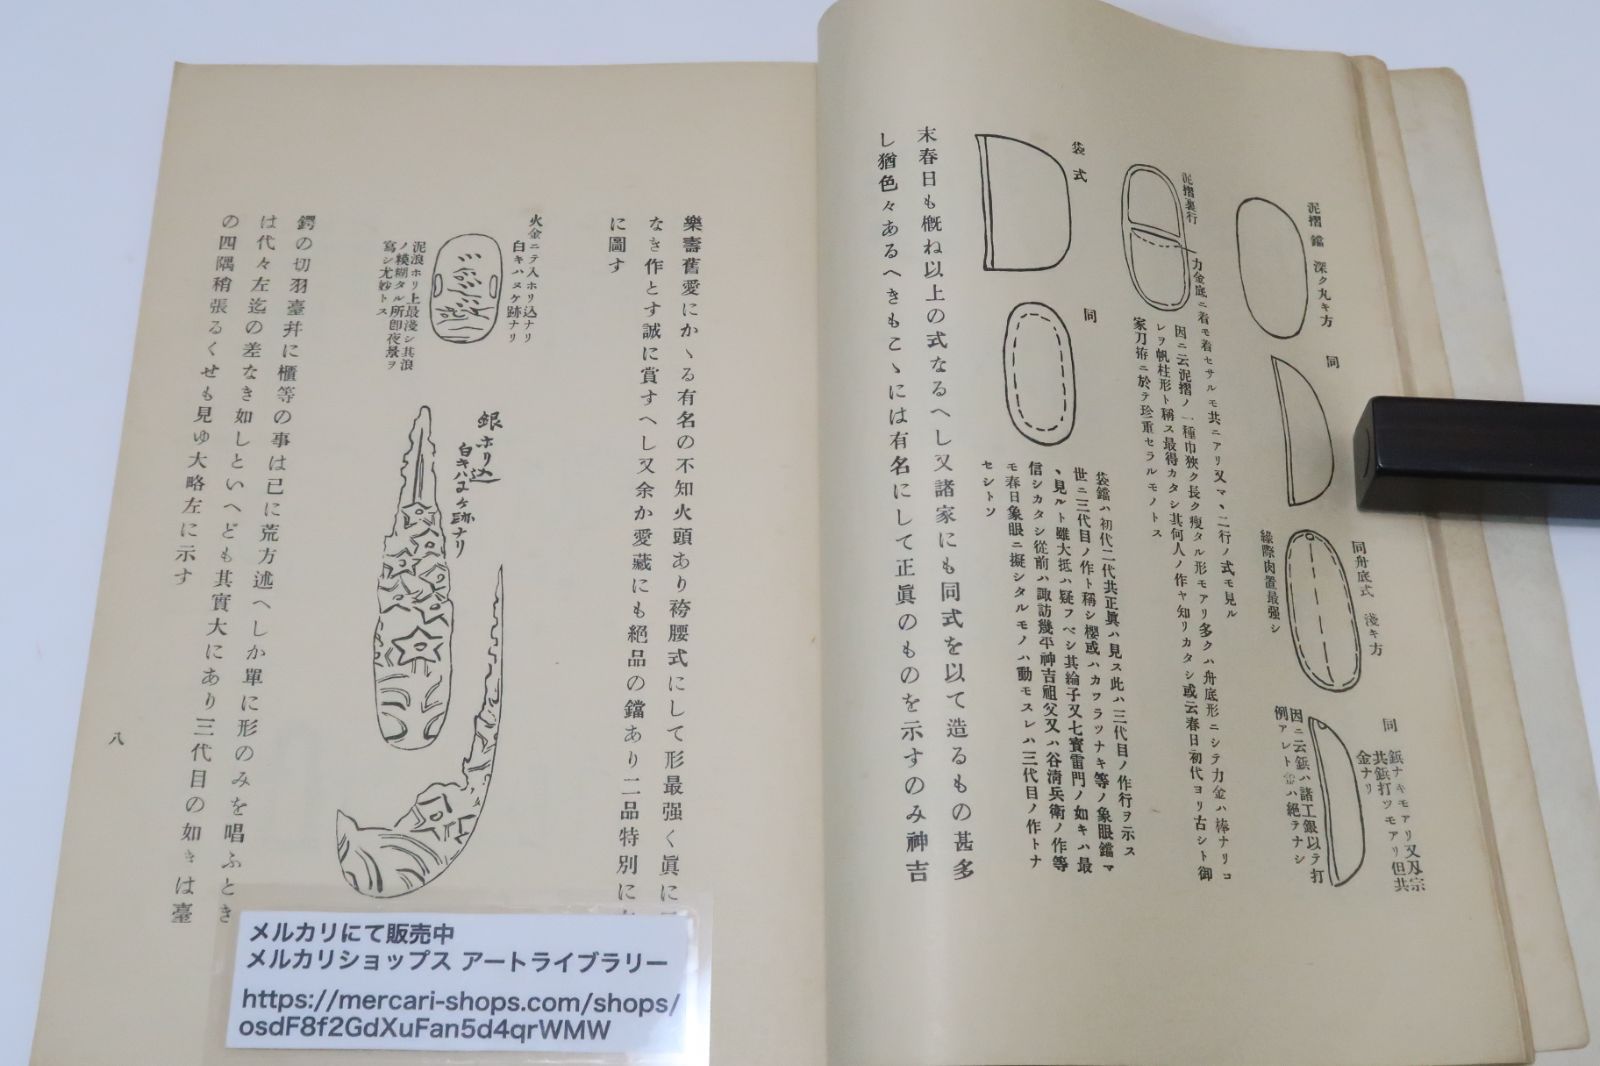 泥摺鐺 深ク丸キ方
同
同舟底式 淺キ方
緣際肉置最强シ
同
鋲ナキモアリ又及宗
共鋲打ツモアリ但共
金ナリ
因ニ云鋲ハ諸工銀以テ打
例アレト金ハ絕テナシ
泥摺裏行
力金底ニ着モ着セサルモ共ニアリ又マヽ二行ノ式モ見ル
因ニ云泥摺ノ一種巾狹ク長ク瘦タル形モアリ多クハ舟底形ニシテ力金ハ棒ナリコ
レヲ帆柱形ト稱ス最得カタシ其何人ノ作ヤ知リカタシ或云春日初代ヨリ古シト御
家刀拵ニ於テ珍重セラルモノトス
袋式
同
袋鐺ハ初代二代共正眞ハ見ス此ハ三代目ノ作行ヲ示ス
世ニ三代目ノ作ト稱シ櫻或ハカワラツナキ等ノ象眼鐺マ
ヽ見ルト雖大抵ハ疑フベシ其綸子又七寳雷門ノ如キハ最
信シカタシ從前ハ諏訪幾平神吉祖父又ハ谷淸兵衛ノ作等
モ春日象眼ニ擬シタルモノハ動モスレハ三代目ノ作トナ
セシトソ
末春日も概ね以上の式なるへし又諸家にも同式を以て造るもの甚多
し猶色々あるへきもこゝには有名にして正眞のものを示すのみ神吉
樂壽舊愛にかゝる有名の不知火頭あり袴腰式にして形最强く眞に
なき作とす誠に賞すへし又余か愛藏にも絕品の鐺あり二品特別に
に圖す
火金ニテ入ホリ込ナリ
白キハヌケ跡ナリ
泥浪ホリ上最淺シ其浪
ノ糢糊タル所卽夜景ヲ
寫シ尤妙トス
銀ホリ込
白キハヌケ跡ナリ
鍔の切羽臺幷に櫃等の事は已に荒方述へしか單に形のみを唱ふとき
は代々左迄の差なき如しといへども其實大にあり三代目の如きは臺
の四隅稍張るくせも見ゆ大略左に示す
八
メルカリにて販売中
メルカリショップス アートライブラリー
https://mercari-shops.com/shops/
osdF8f2GdXuFan5d4qrWMW